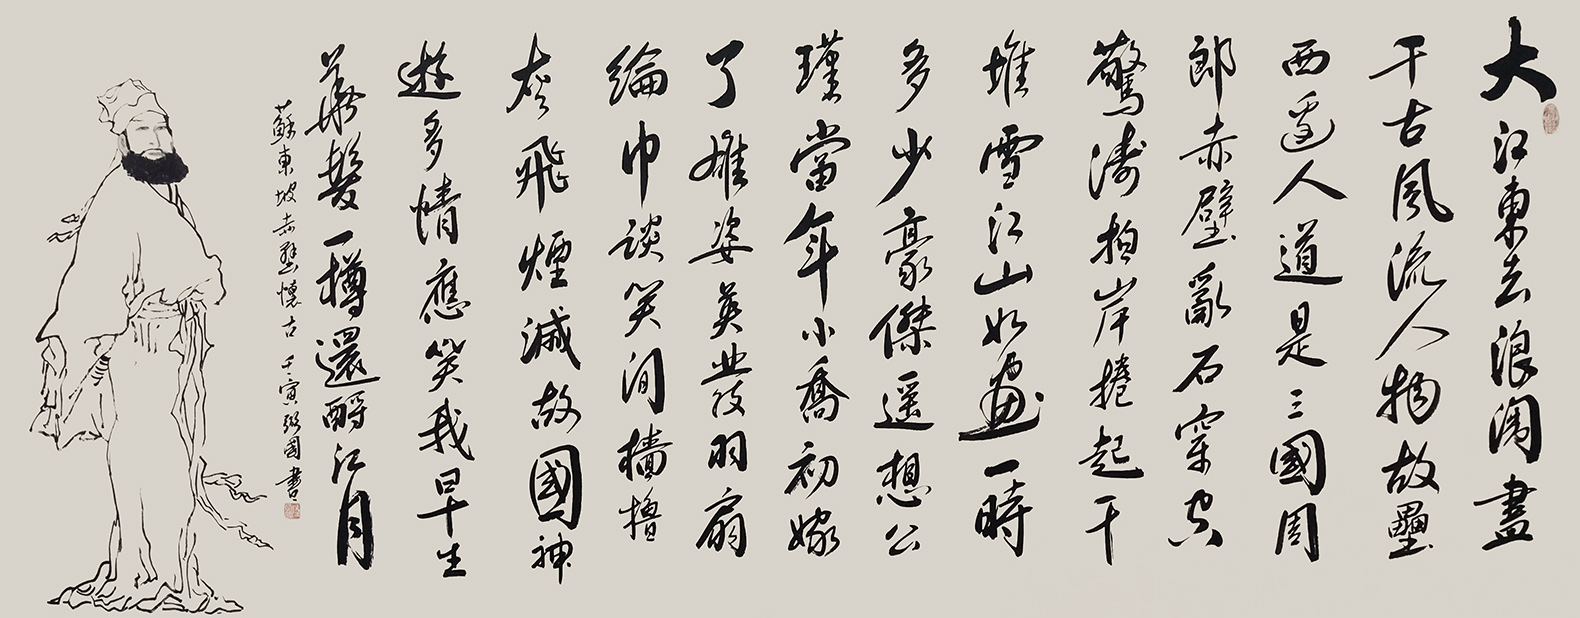 大江東去浪淘盡
千古風流人物故壘
西邊人道是三國周
郎赤壁亂石穿空
驚濤拍岸捲起千
堆雪江山如畫一時
多少豪傑遥想公
瑾當年小喬初嫁
了雄姿英發羽扇
綸巾談笑间檣櫓
灰飛煙滅故國神
遊多情應笑我早生
華髮一樽還酹江月
蘇東坡赤壁懷古 壬寅 國書